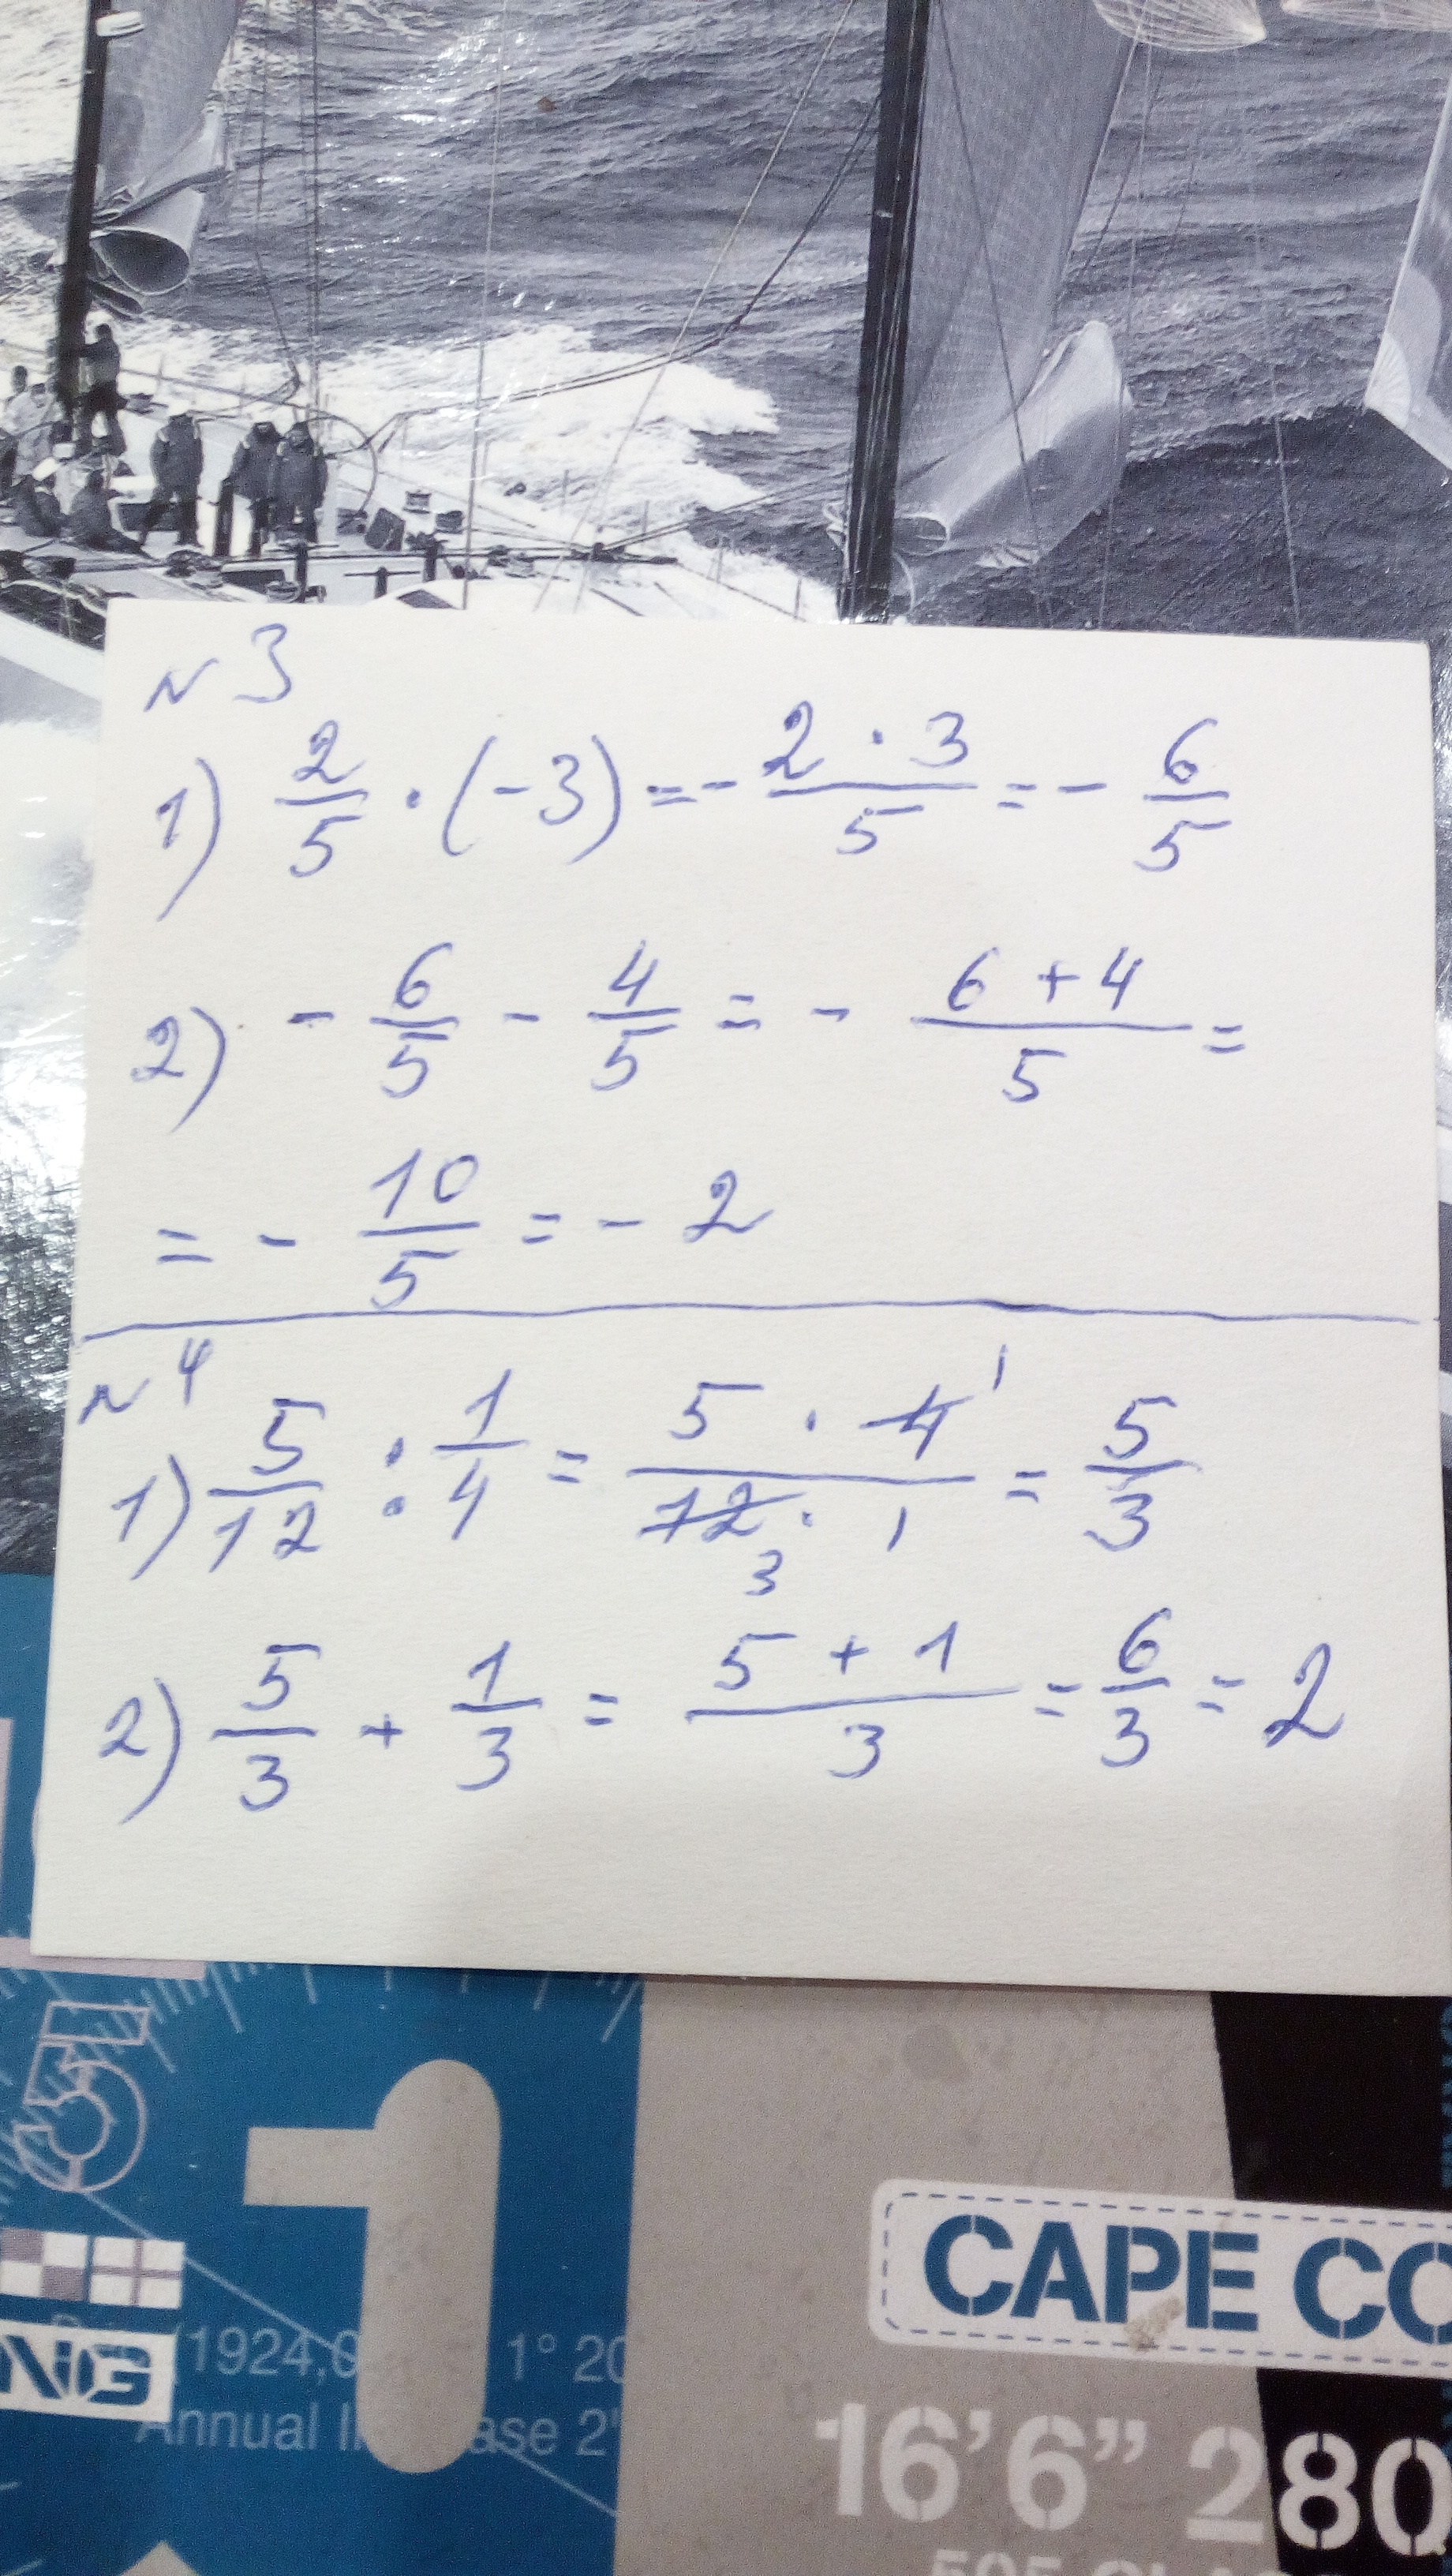 N 3
1) 2/5 · (-3) = - 2 · 3/5 = - 6/5
2) - 6/5 - 4/5 = - 6 + 4/5 =
= - 10/5 = - 2
N 4
1) 5/12 : 1/4 = 5 · 4 1/12 · 1 3 = 5/3
2) 5/3 + 1/3 = 5 + 1/3 = 6/3 = 2
5
1
NG
(1924,
1° 20
Annual
ase 2'
CAPE CO
16'6" 280